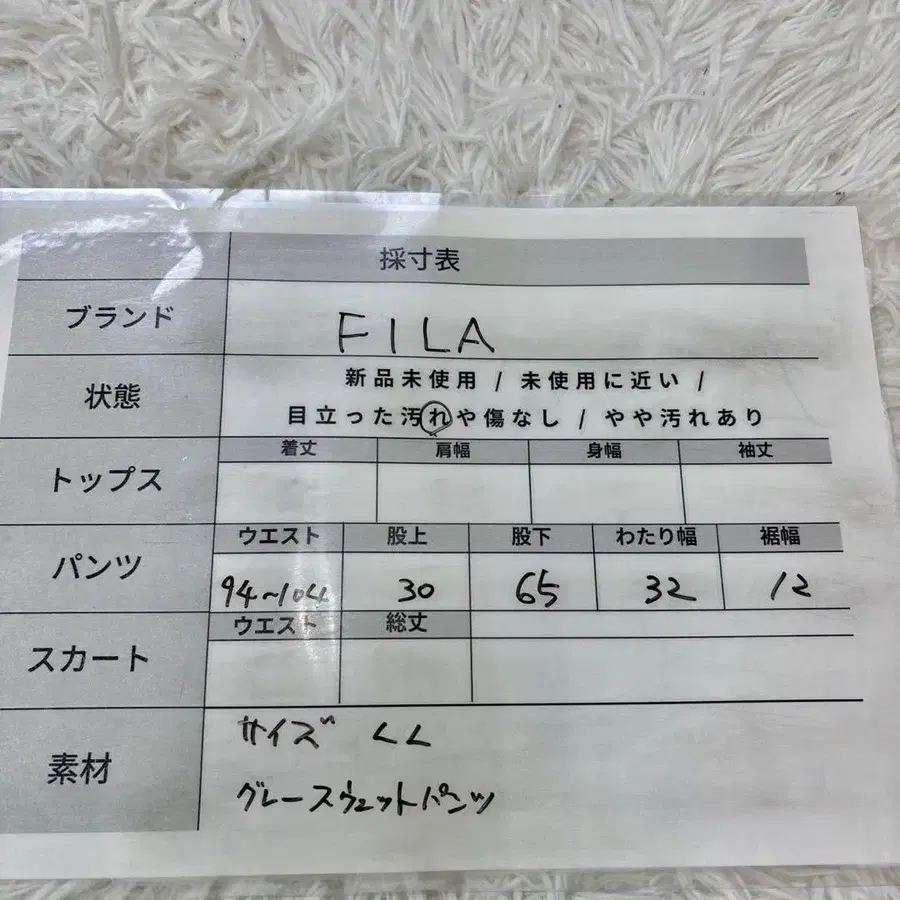 採寸表
ブランド FILA
状態 新品未使用 / 未使用に近い /
目立った汚れや傷なし / やや汚れあり
トップス 着丈 肩幅 身幅 袖丈
パンツ ウエスト 股上 股下 わたり幅 裾幅
94~104 30 65 32 12
スカート ウエスト 総丈
素材 サイズ LL
グレースウェットパンツ